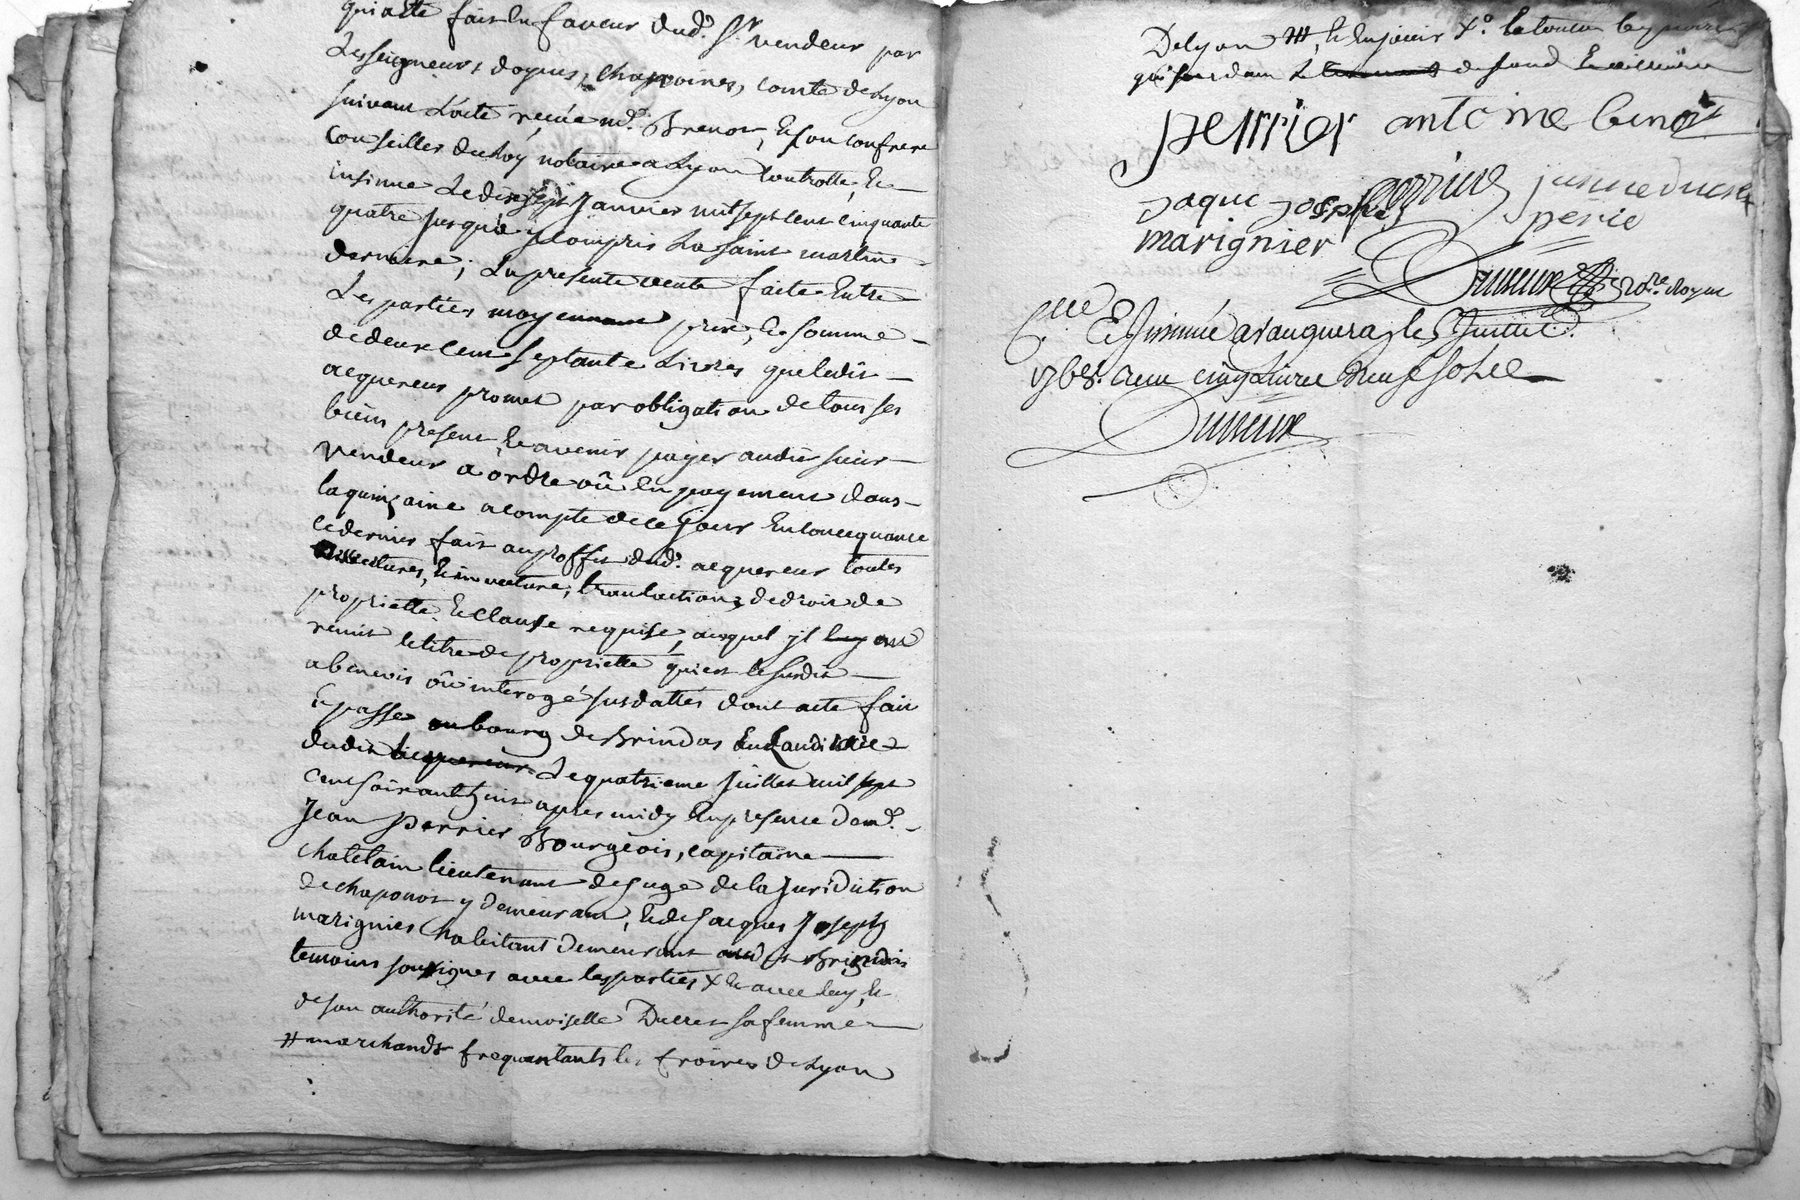 qui a été fait en faveur dud. Sr. vendeur par
Les seigneurs doyens, chanoines, comte de Lyon
suivant L'acte reçue md. Brenot, & son confrere
Conseiller du Roy notaire a Lyon Controllé, &
insinue Le dixsept Janvier mil sept cent cinquante
quatre jusqu'a y compris La saint martin
derniere; La presente vente faite Entre
Les parties moyennant prix, & somme
de deux cent septante Livres que ledit
acquereur promet par obligation de tous ses
biens present, & avenir payer audit sieur
vendeur a ordre où En payement dans
la quinzaine a compte de ce jour En consequance
ce dernier fait au proffit dud. acquereur toutes
investitures, translation de droit de
proprietté & clause requise, auquel jl
remit le titre de proprietté qui est le susdit
abenevis où interogé susdattés dont acte fait
& passé au bourg de Brindas
dudit acquereur Le quatrieme Juillet mil sept
cent soixante huit apres midy En presence de md.
Jean Perrier Bourgeois, capitaine
chatelain lieutenant de juge de la Juridiction
de chaponost y demeurant, & de jacques Joseph
marignier habitant demeurant audit Brindas
temoins soussignes avec les parties x & avec luy, &
de son authorité demoiselle Ducret sa femme
# marchands frequantants les froires de Lyon
De Lyon
qui sont dans L de fond
perrier antoine benoit
jaque joseph perrier jeanne ducret
marignier perie
Dusseux nore. Royal
& Jnsinué a vaugneray le 5 Juillet
1768. Reçu cinq Livres neuf sols
Dusseux